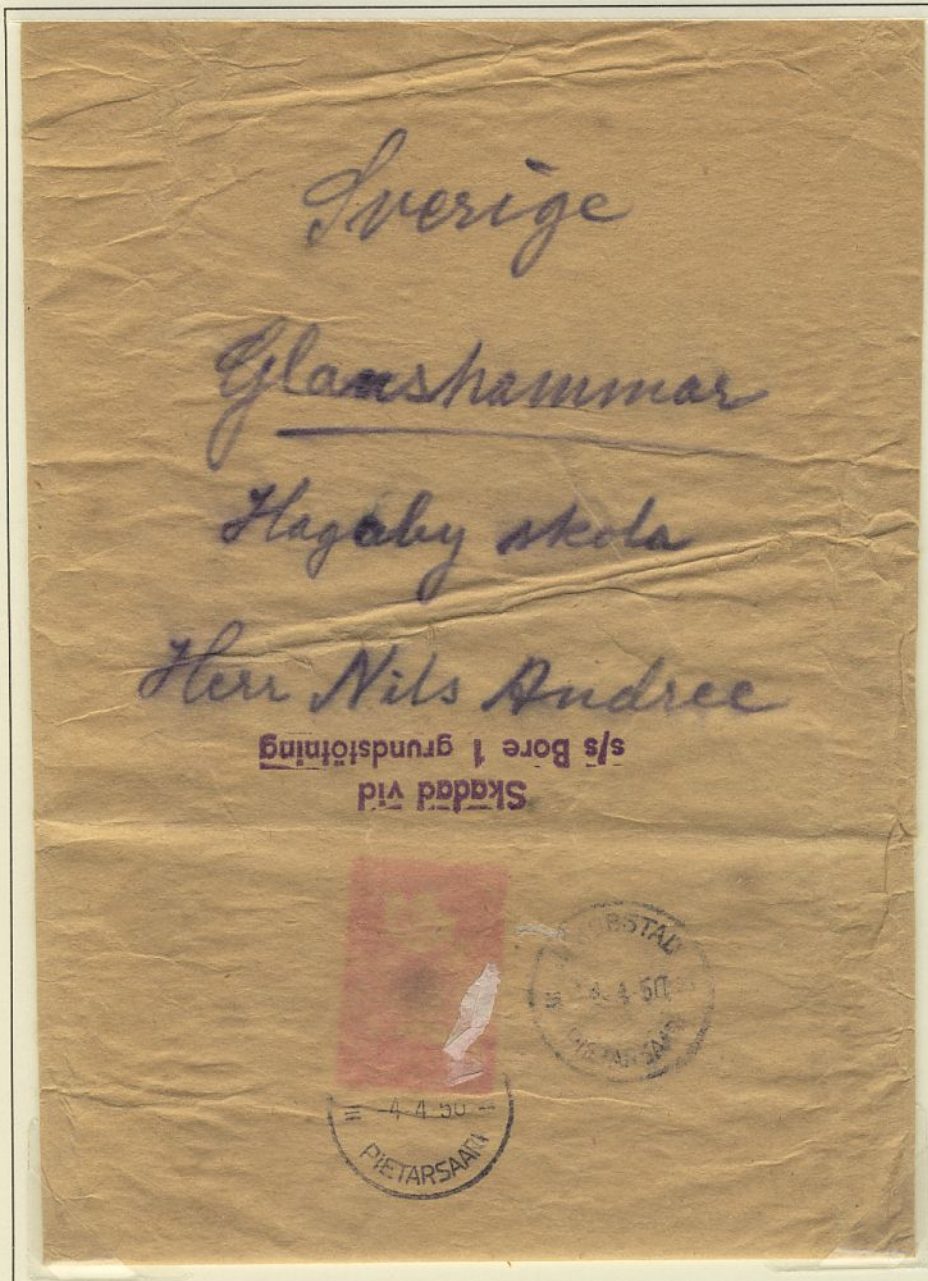 Sverige
Glanshammar
Hagaby skola
Herr Nils Andree
Skadad vid
s/s Bore 1 grundstötning
-4-4 50
PIETARSAARI
4 50
PIETARSAARI